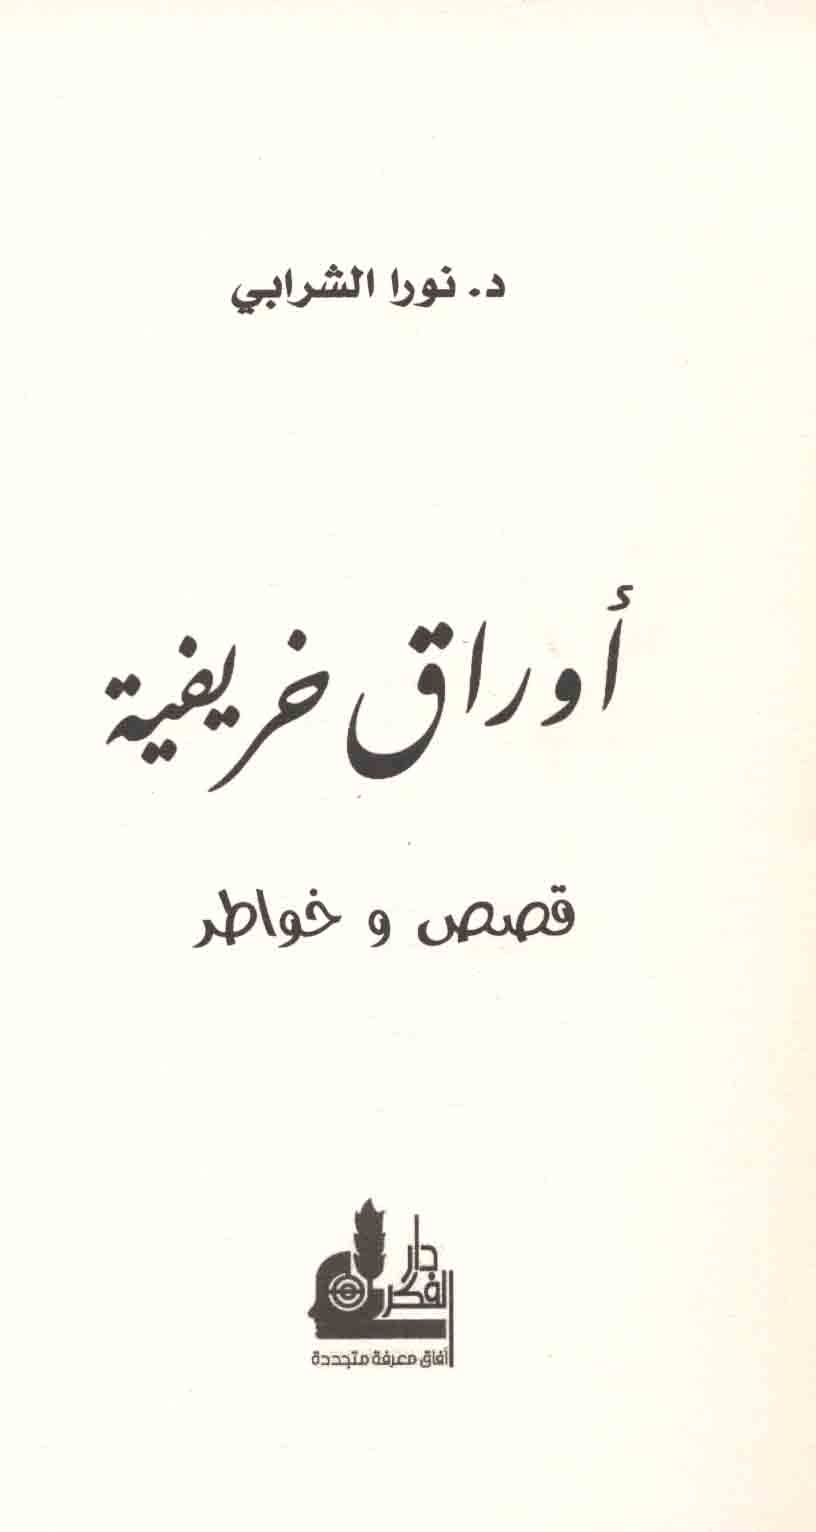 د. نورا الشرابي
أوراق خريفية
قصص و خواطر
دار
الفكر
آفاق معرفة متجددة